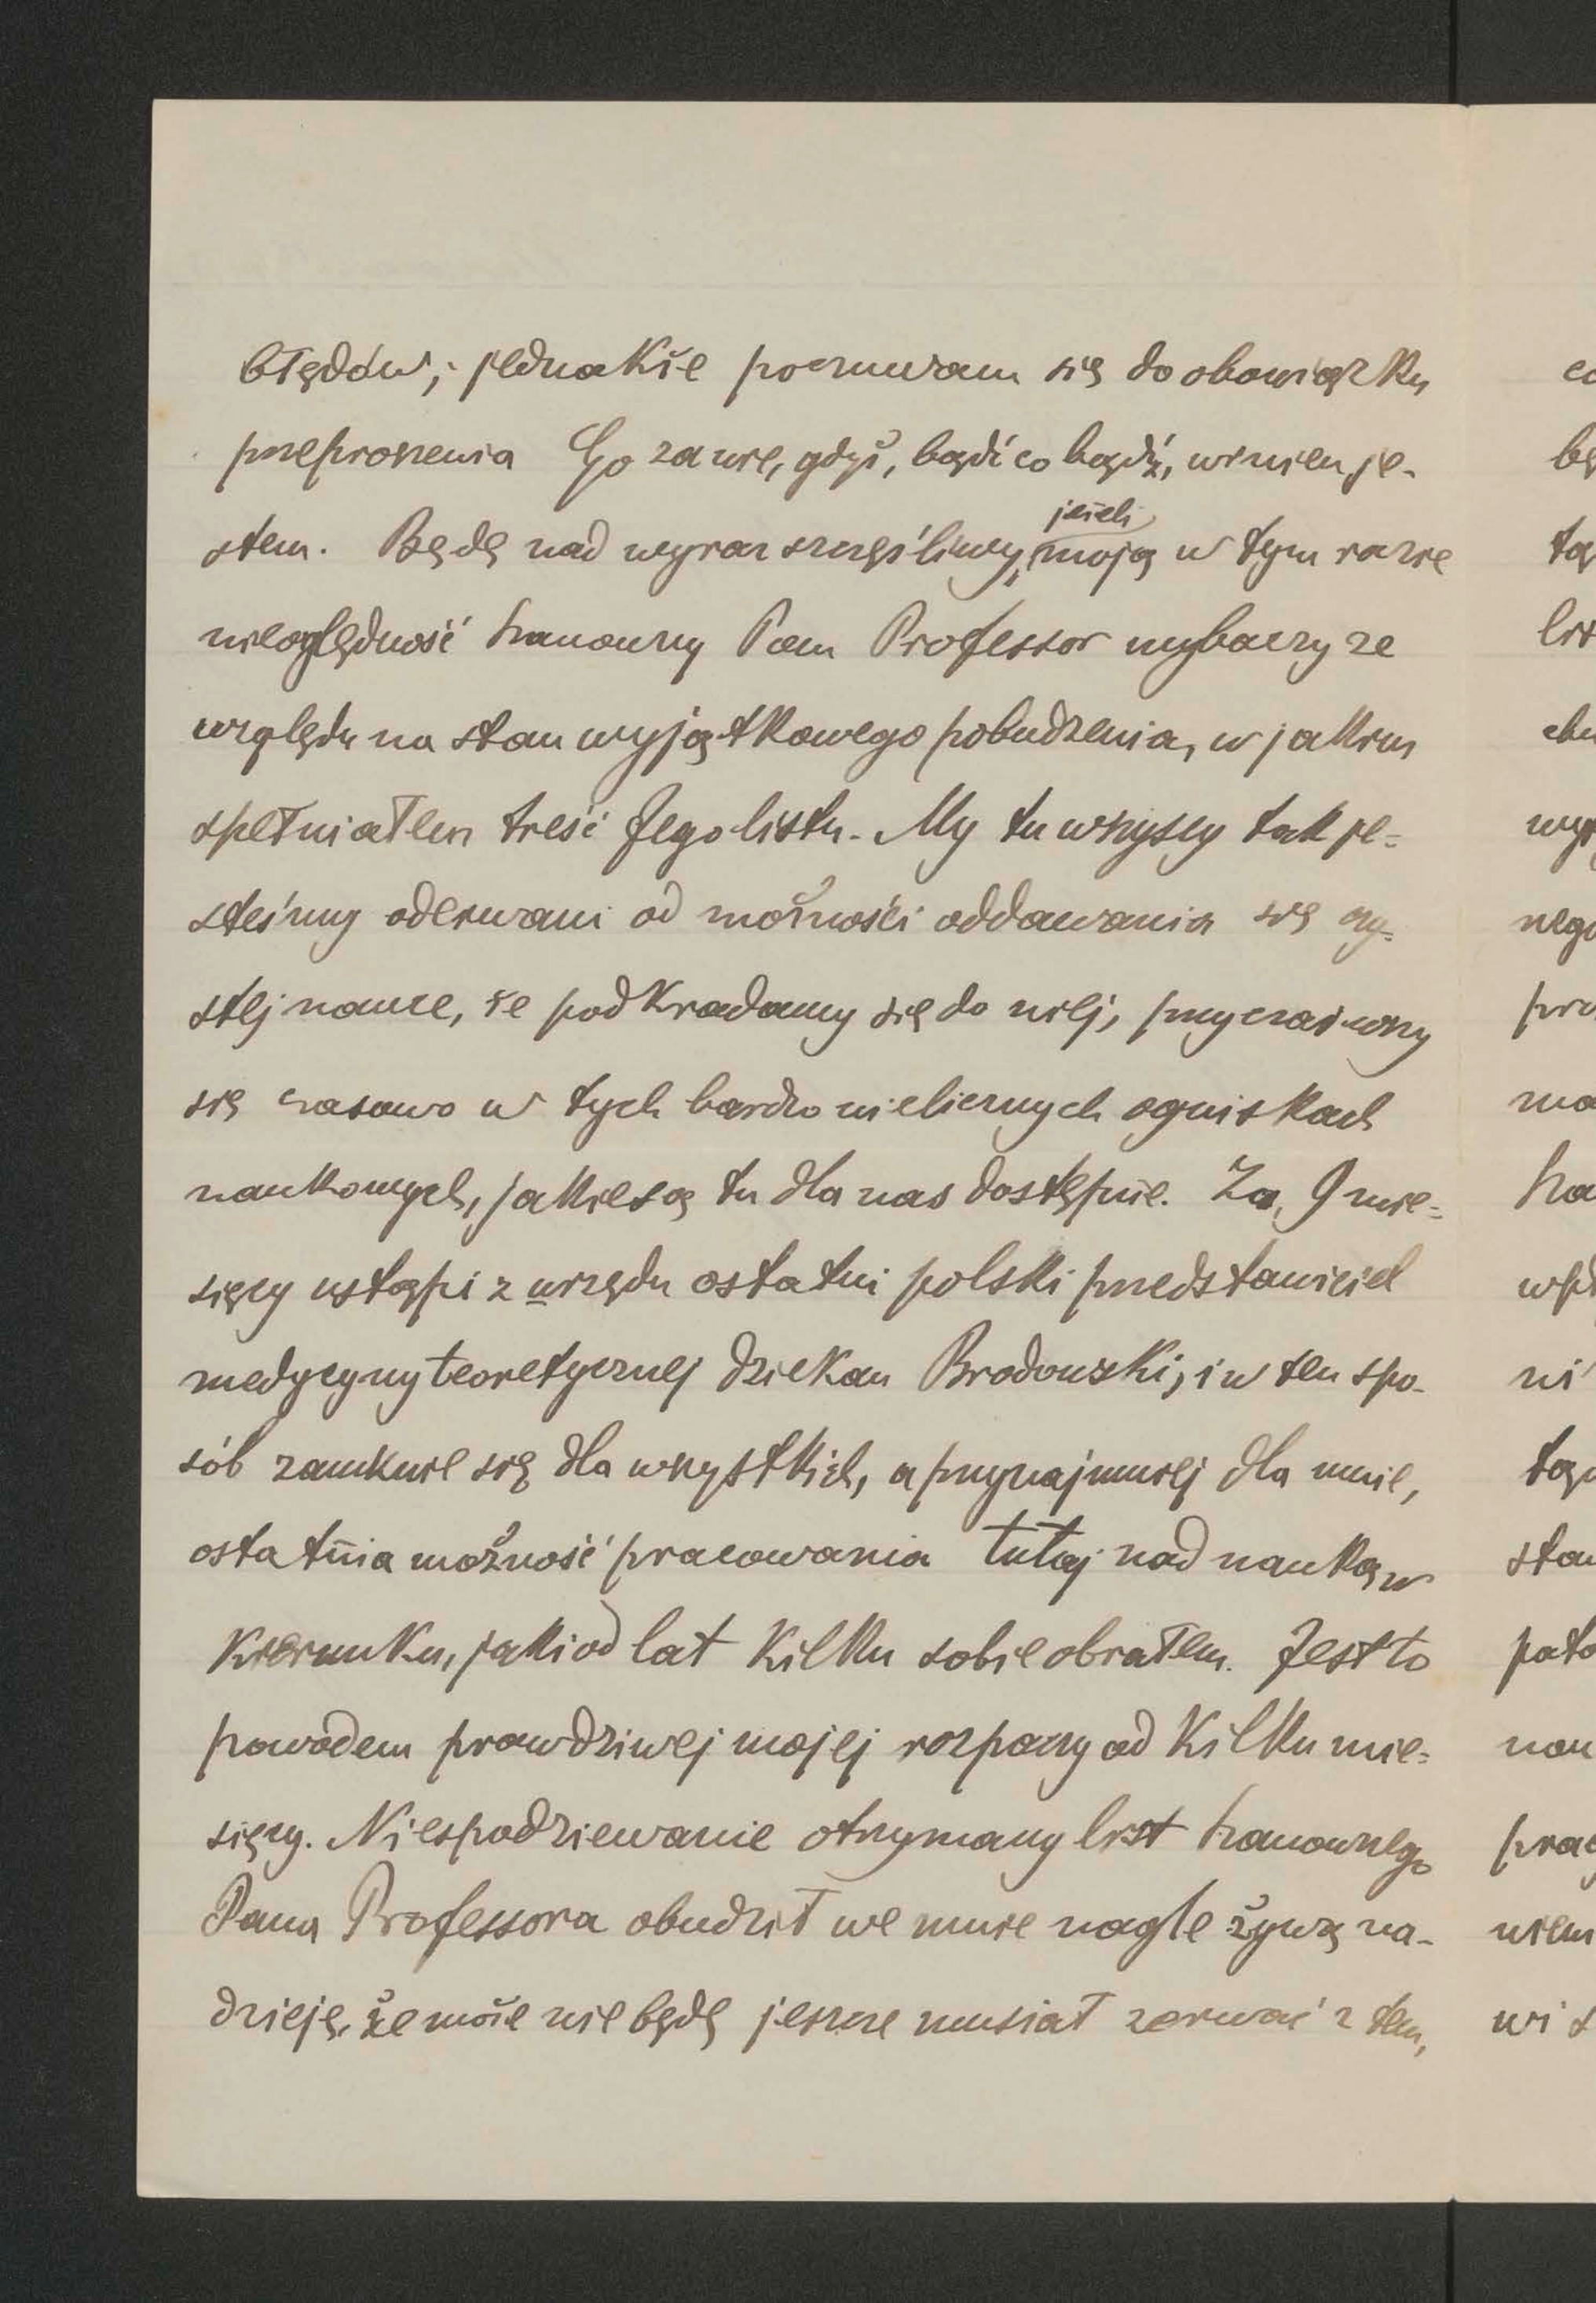 błędów; jednakże poczuwam się do obowiązku
przeproszenia Go za nie, gdyż, bądź co bądź, winien je-
stem. Będę nad wyraz szczęśliwy, jeżeli moją w tym razie
nieoględność Szanowny Pan Professor wybaczy ze
względu na stan wyjątkowego pobudzenia, w jakim
spełniałem treść Jego listu. My tu wszyscy tak je=
steśmy oderwani od możności oddawania się czy=
stej nauce, że podkradamy się do niej, przyczaiwszy
się czasowo w tych bardzo nielicznych ogniskach
naukowych, jakie są tu dla nas dostępne. Za 9 mie=
sięcy ustąpi z urzędu ostatni polski przedstawiciel
medycyny teoretycznej dziekan Brodowski, i w ten spo-
sób zamknie się dla wszystkich, a przynajmniej dla mnie,
ostatnia możność pracowania tutaj nad nauką w
kierunku, jaki od lat kilku sobie obrałem. Jest to
powodem prawdziwej mojej rozpaczy od kilku mie=
sięcy. Niespodziewanie otrzymany list Szanownego
Pana Professora obudził we mnie nagle żywą na-
dzieję, że może nie będę jeszcze musiał zerwać z tem,